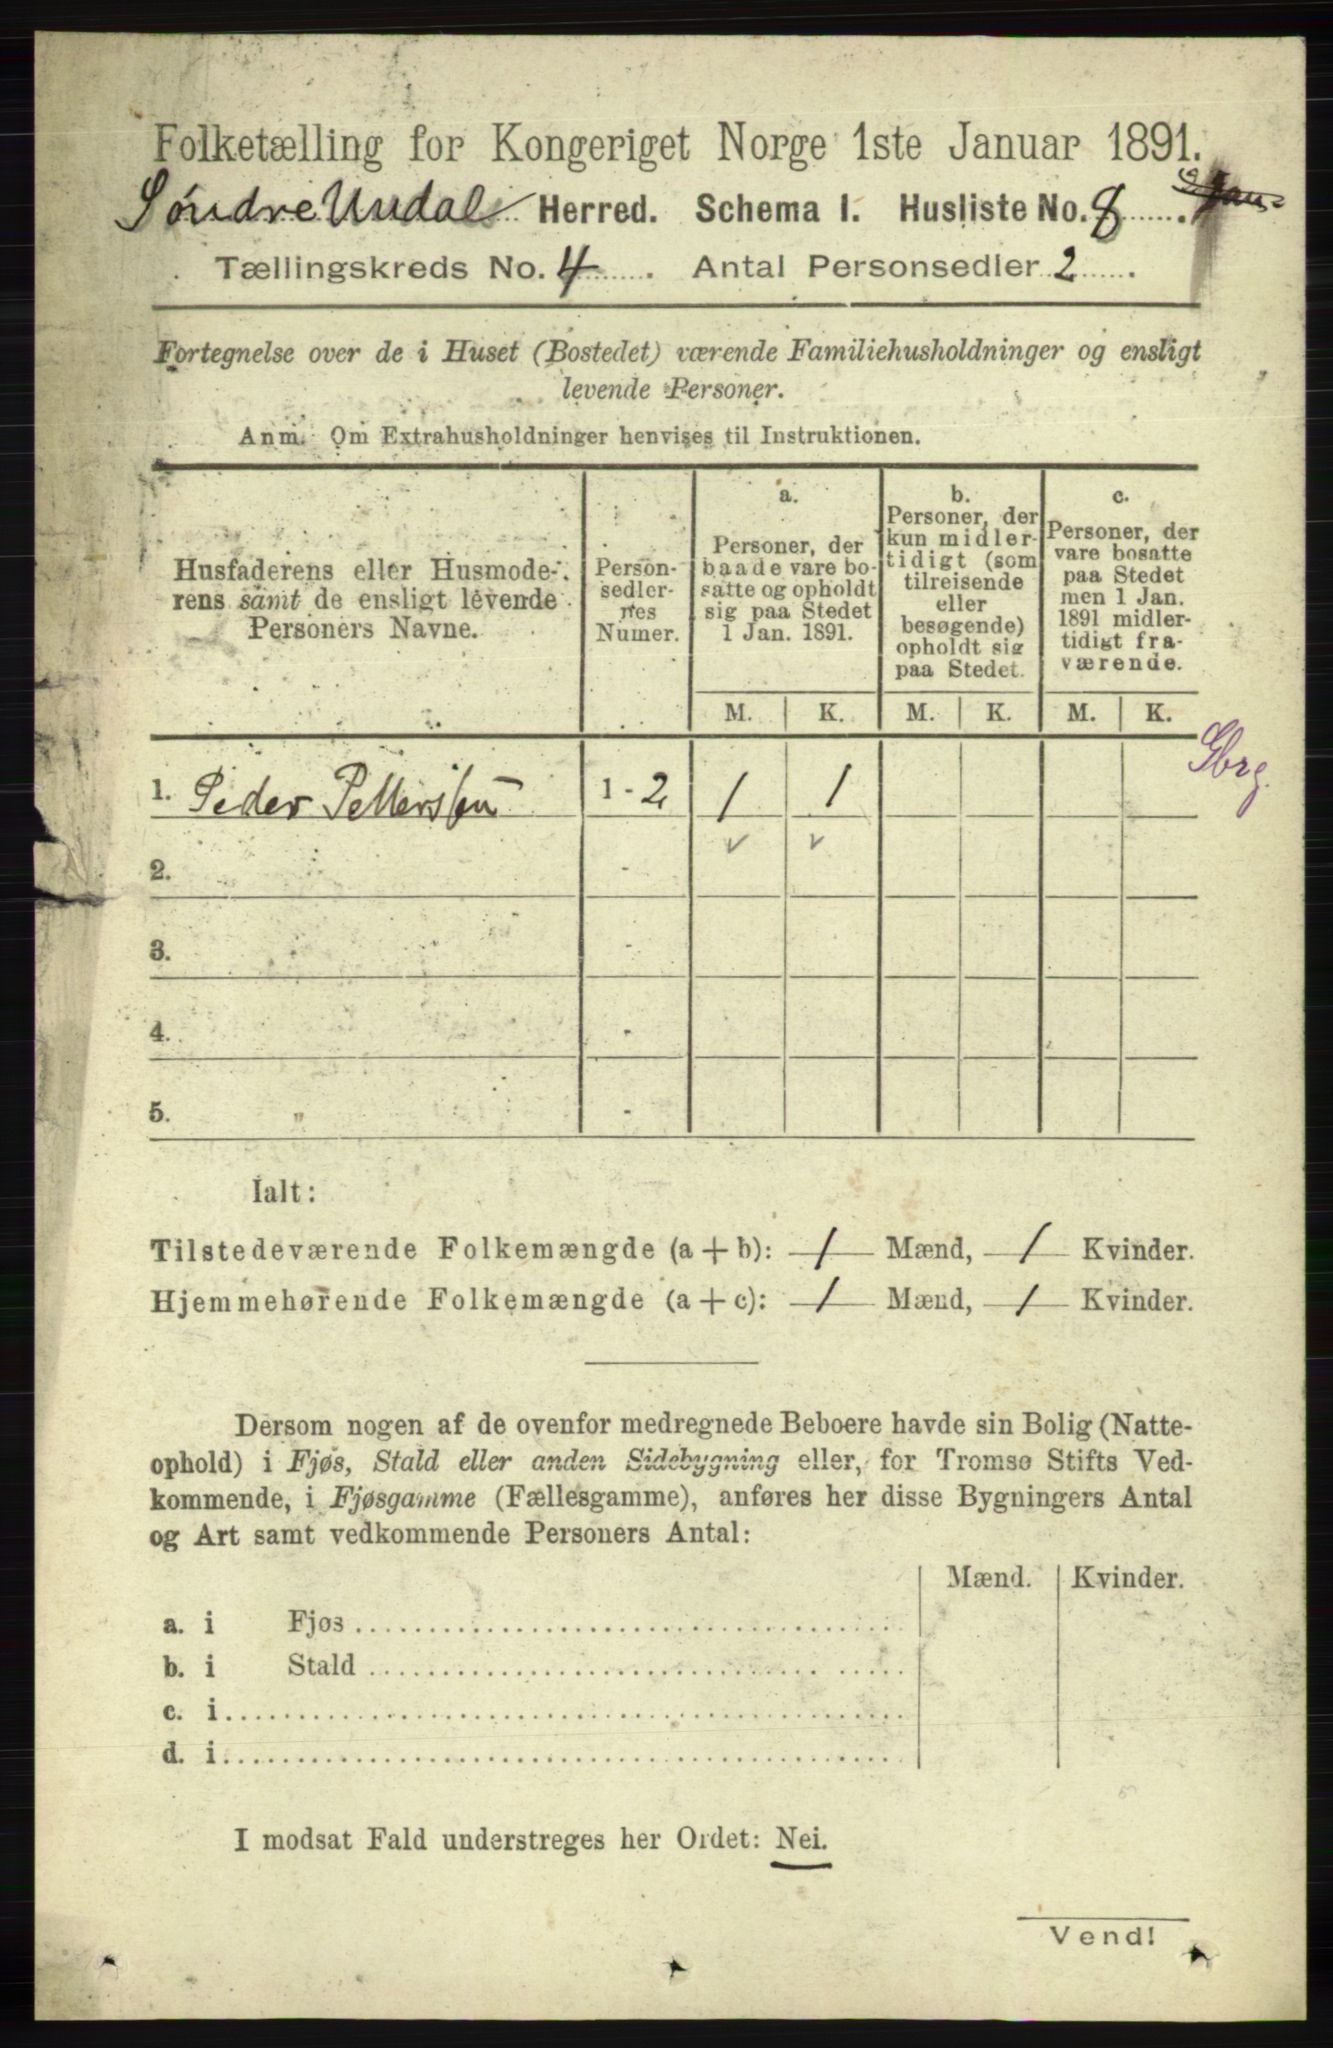 Folketælling for Kongeriget Norge 1ste Januar 1891.
Søndre Undal Herred. Schema I. Husliste No. 8.
Tællingskreds No. 4. Antal Personsedler 2.
Fortegnelse over de i Huset (Bostedet) værende Familiehusholdninger og ensligt
levende Personer.
Anm. Om Extrahusholdninger henvises til Instruktionen.
Husfaderens eller Husmode-
rens samt de ensligt levende
Personers Navne.
Person-
sedler-
nes
Numer.
a.
Personer, der
baade vare bo-
satte og opholdt
sig paa Stedet
1 Jan. 1891.
b.
Personer, der
kun midler-
tidigt (som
tilreisende
eller
besøgende)
opholdt sig
paa Stedet.
c.
Personer, der
vare bosatte
paa Stedet
men 1 Jan.
1891 midler-
tidigt fra-
værende.
M. K. M. K. M. K.
Gbrg
1. Peder Pettersen 1 - 2 1 1
2. -
3. -
4. -
5. „ -
Ialt:
Tilstedeværende Folkemængde (a + b): 1 Mænd, 1 Kvinder.
Hjemmehørende Folkemængde (a + c): 1 Mænd, 1 Kvinder.
Dersom nogen af de ovenfor medregnede Beboere havde sin Bolig (Natte-
ophold) i Fjøs, Stald eller anden Sidebygning eller, for Tromsø Stifts Ved-
kommende, i Fjøsgamme (Fællesgamme), anføres her disse Bygningers Antal
og Art samt vedkommende Personers Antal:
Mænd. Kvinder.
a. i Fjøs
b. i Stald
c. i
d. i
I modsat Fald understreges her Ordet: Nei.
Vend!